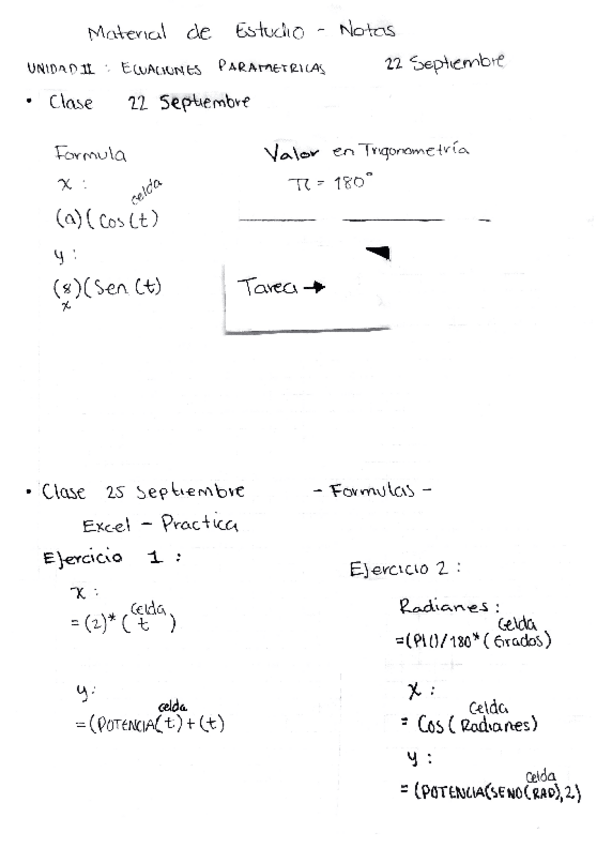 Material de Estudio - Notas
UNIDAD II : ECUACIONES PARAMETRICAS 22 Septiembre
• Clase 22 Septiembre
Formula
x : celda
(a)(Cos(t)
y :
(8)(Sen(t)
x
Valor en Trigonometría
π = 180°
Tarea →
• Clase 25 Septiembre - Formulas -
Excel - Practica
Ejercicio 1 :
x :
celda
= (2)* ( t )
y:
celda
= (POTENCIA(t)+(t)
Ejercicio 2 :
Radianes :
celda
=(PI()/180*(Grados)
x :
celda
= Cos ( Radianes)
y :
celda
= (POTENCIA(SENO(RAD),2)